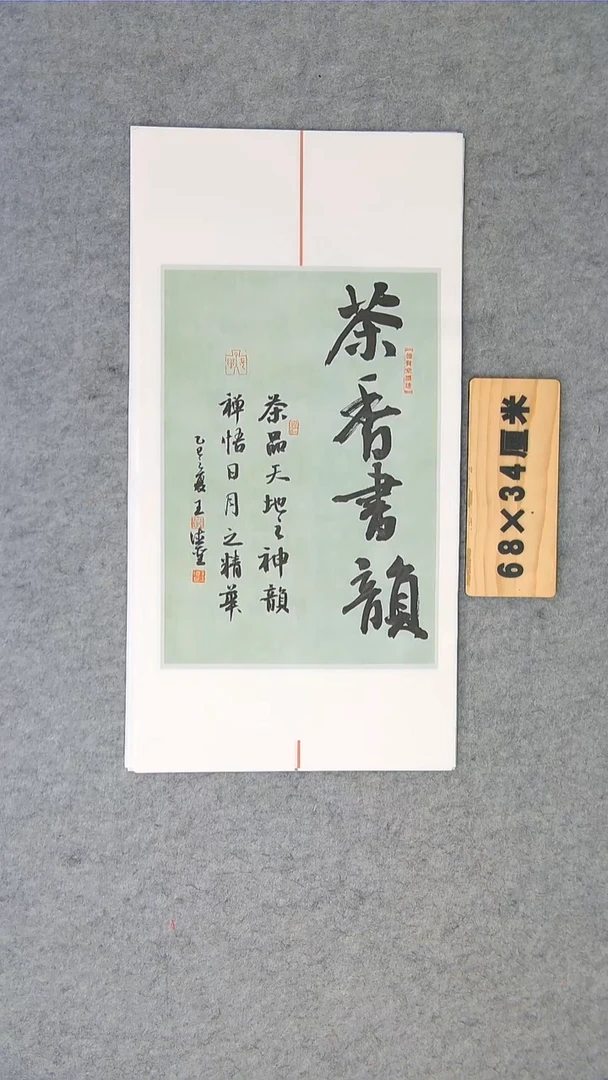 茶香書韻
茶品天地之神韻
禅悟日月之精華
乙巳夏王
68×34厘米